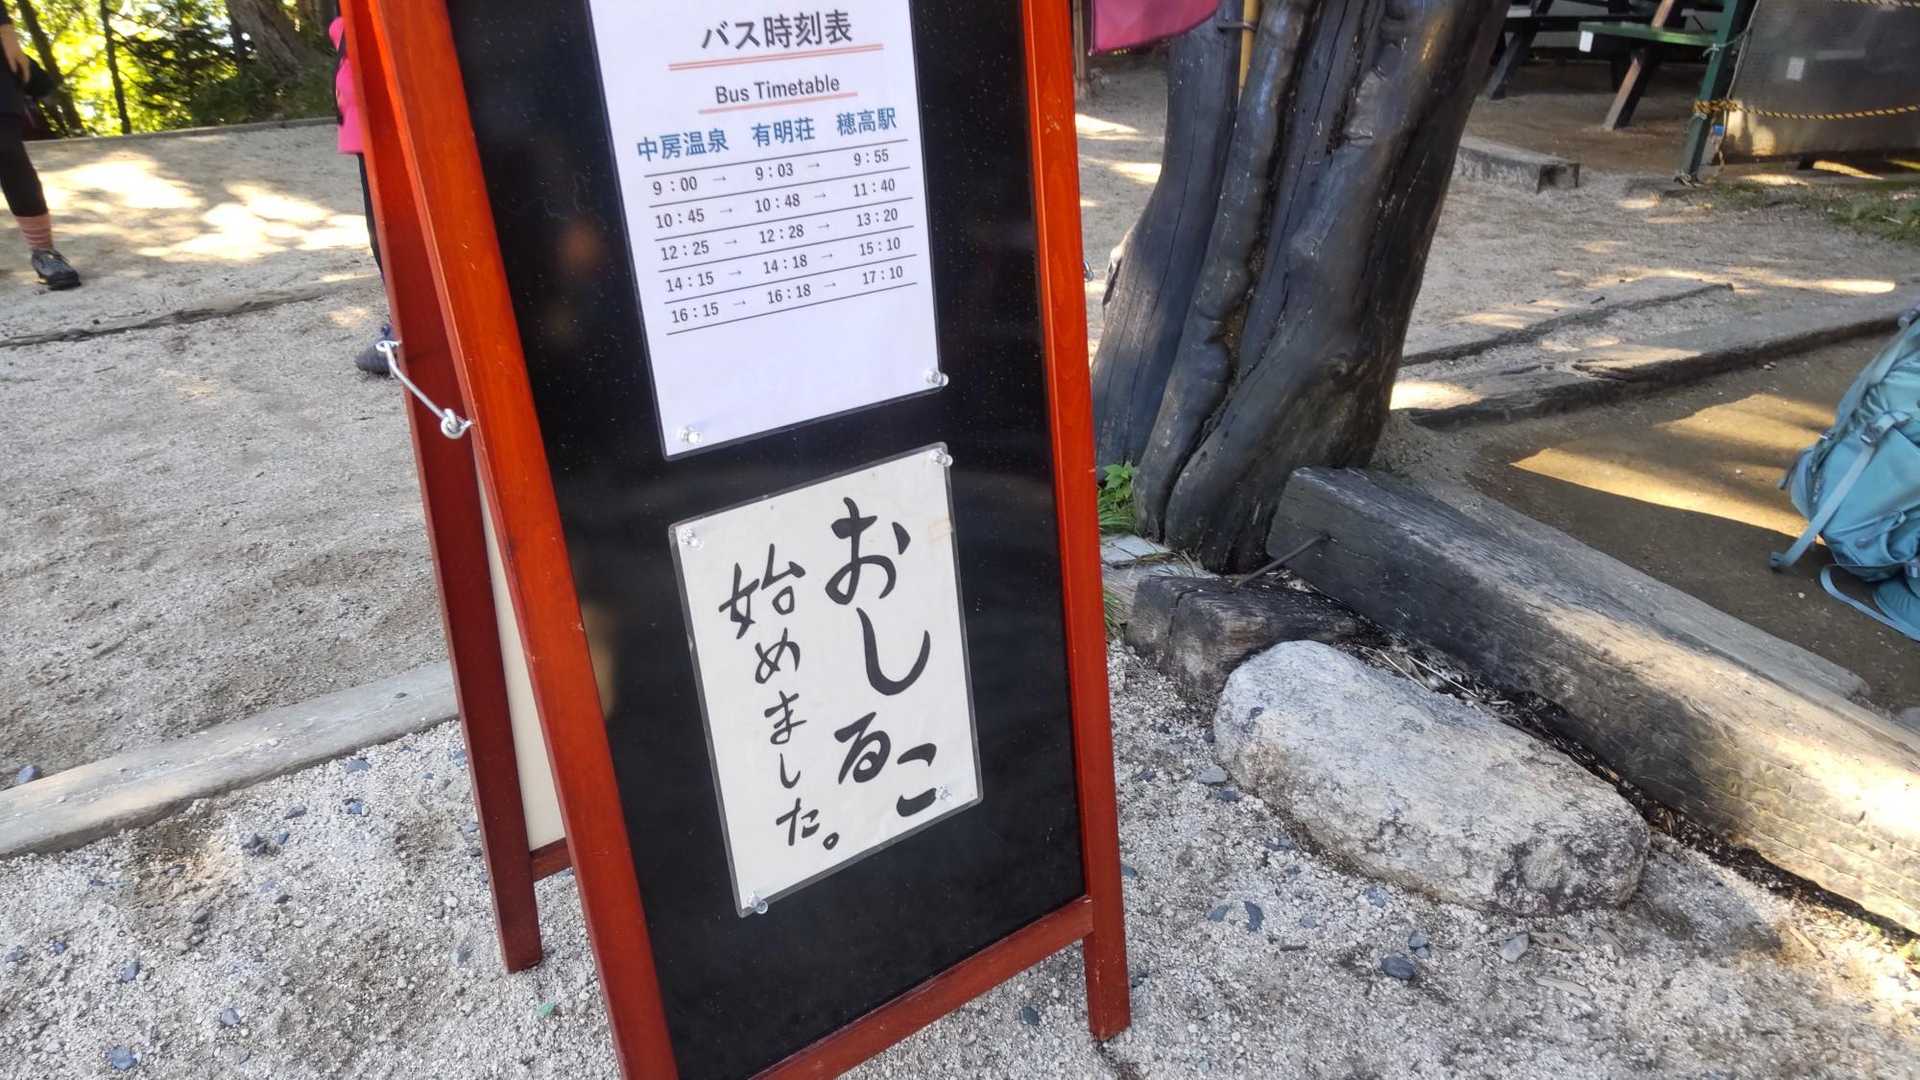 バス時刻表
Bus Timetable
中房温泉 有明荘 穂高駅
9:00 → 9:03 → 9:55
10:45 → 10:48 → 11:40
12:25 → 12:28 → 13:20
14:15 → 14:18 → 15:10
16:15 → 16:18 → 17:10
おしるこ
始めました。